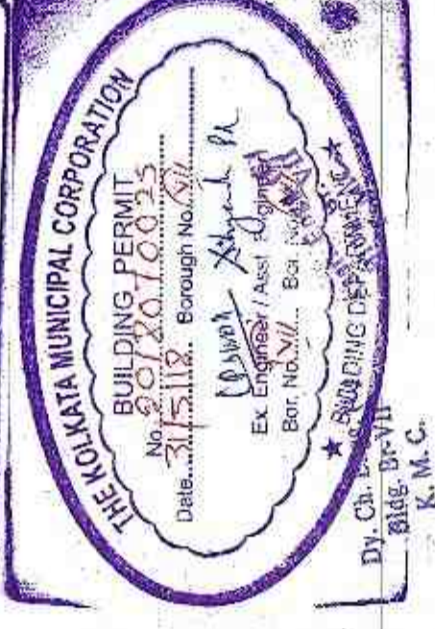 THE KOLKATA MUNICIPAL CORPORATION
BUILDING PERMIT
No. 2018070025
Date 31/5/18 Borough No. VII
Ex. Engineer / Asst. Engineer
Bor. No. VII Bor.
★ BUILDING DEPARTMENT ★
Dy. Ch.
Bldg. Br-VII
K. M. C.